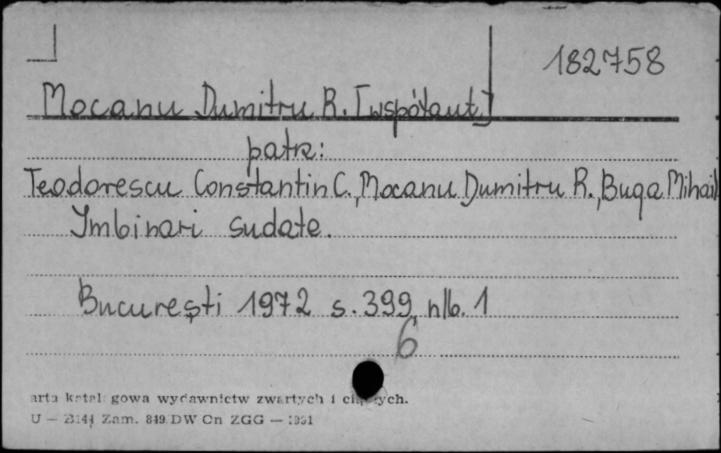 182758
Mocanu Dumitru R. [współaut.]
patrz:
Teodorescu Constantin C., Mocanu Dumitru R., Buga Mihail
Imbinari sudate.
București 1972 s. 399, nlb. 1
6
arta katal gowa wydawnictw zwartych i ciągłych.
U — Zam. 849 DW Cn ZGG —